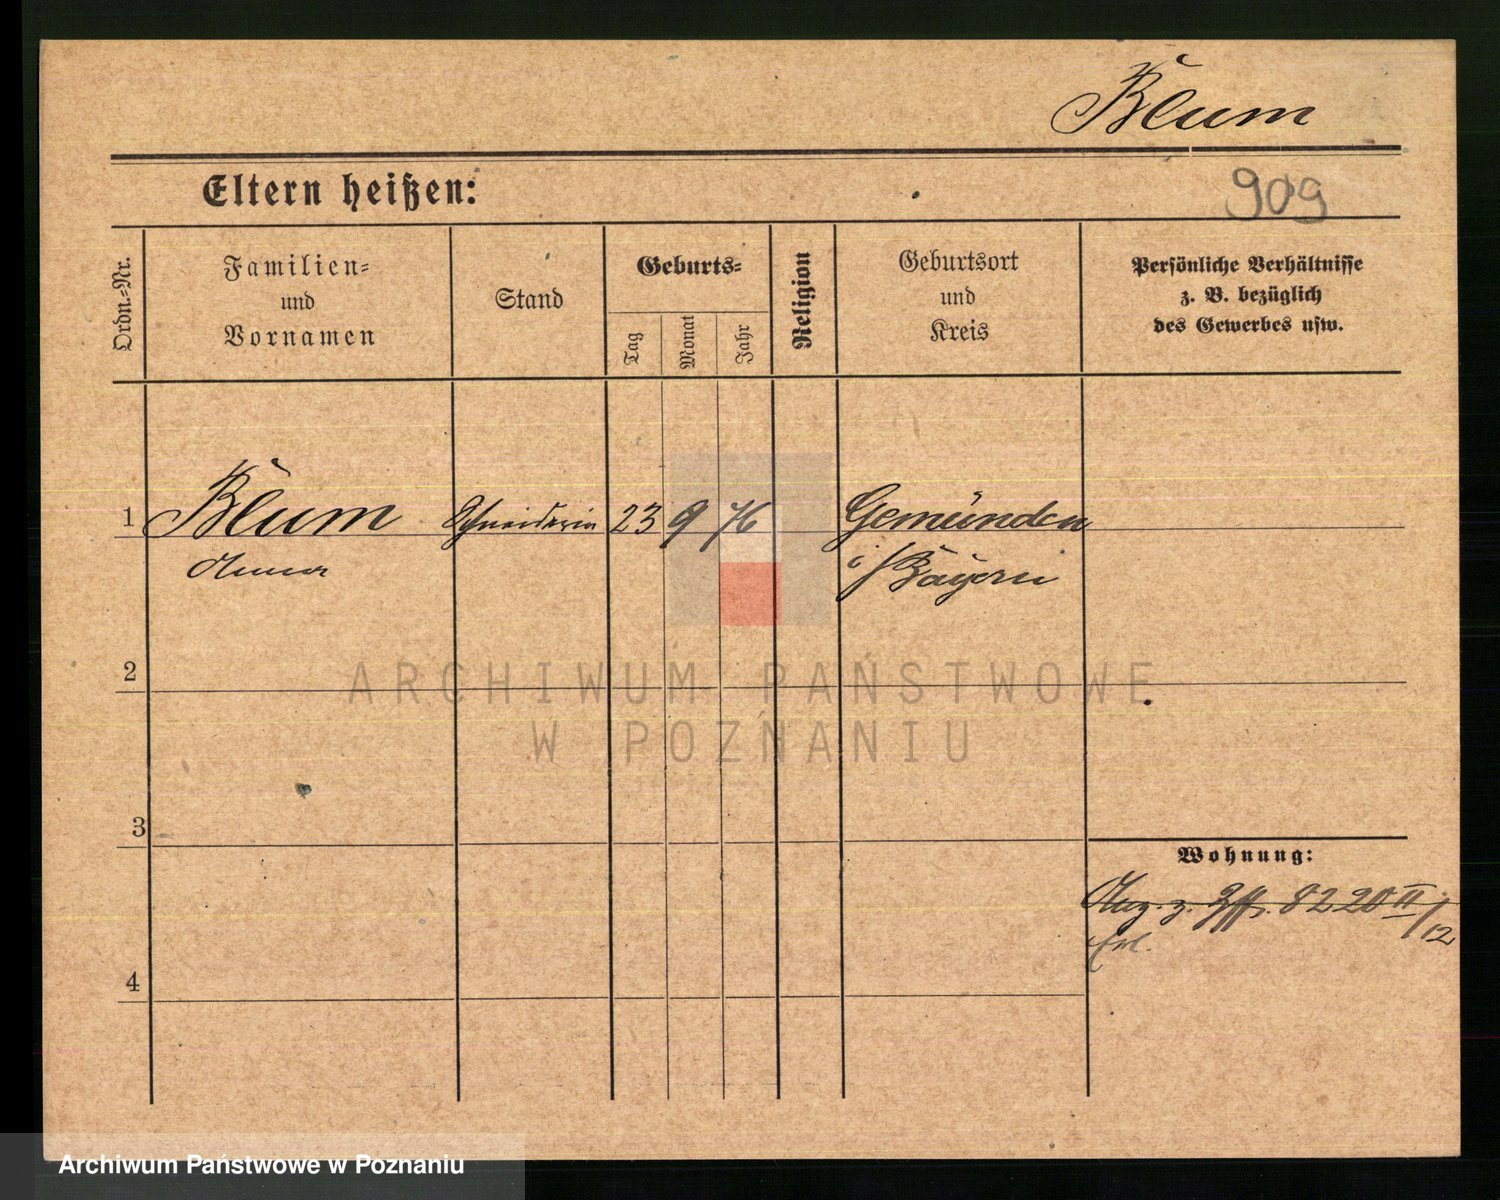 Blum
Eltern heißen:
909
Ordn.-Nr.
Familien-
und
Vornamen
Stand
Geburts-
Tag
Monat
Jahr
Religion
Geburtsort
und
Kreis
Persönliche Verhältnisse
z. B. bezüglich
des Gewerbes usw.
1 Blum Schneiderin 23 9 76 Gemünden
Anna i/Bayern
2
ARCHIWUM PAŃSTWOWE
W POZNANIU
3
Wohnung:
82 20 II
12
4
Archiwum Państwowe w Poznaniu